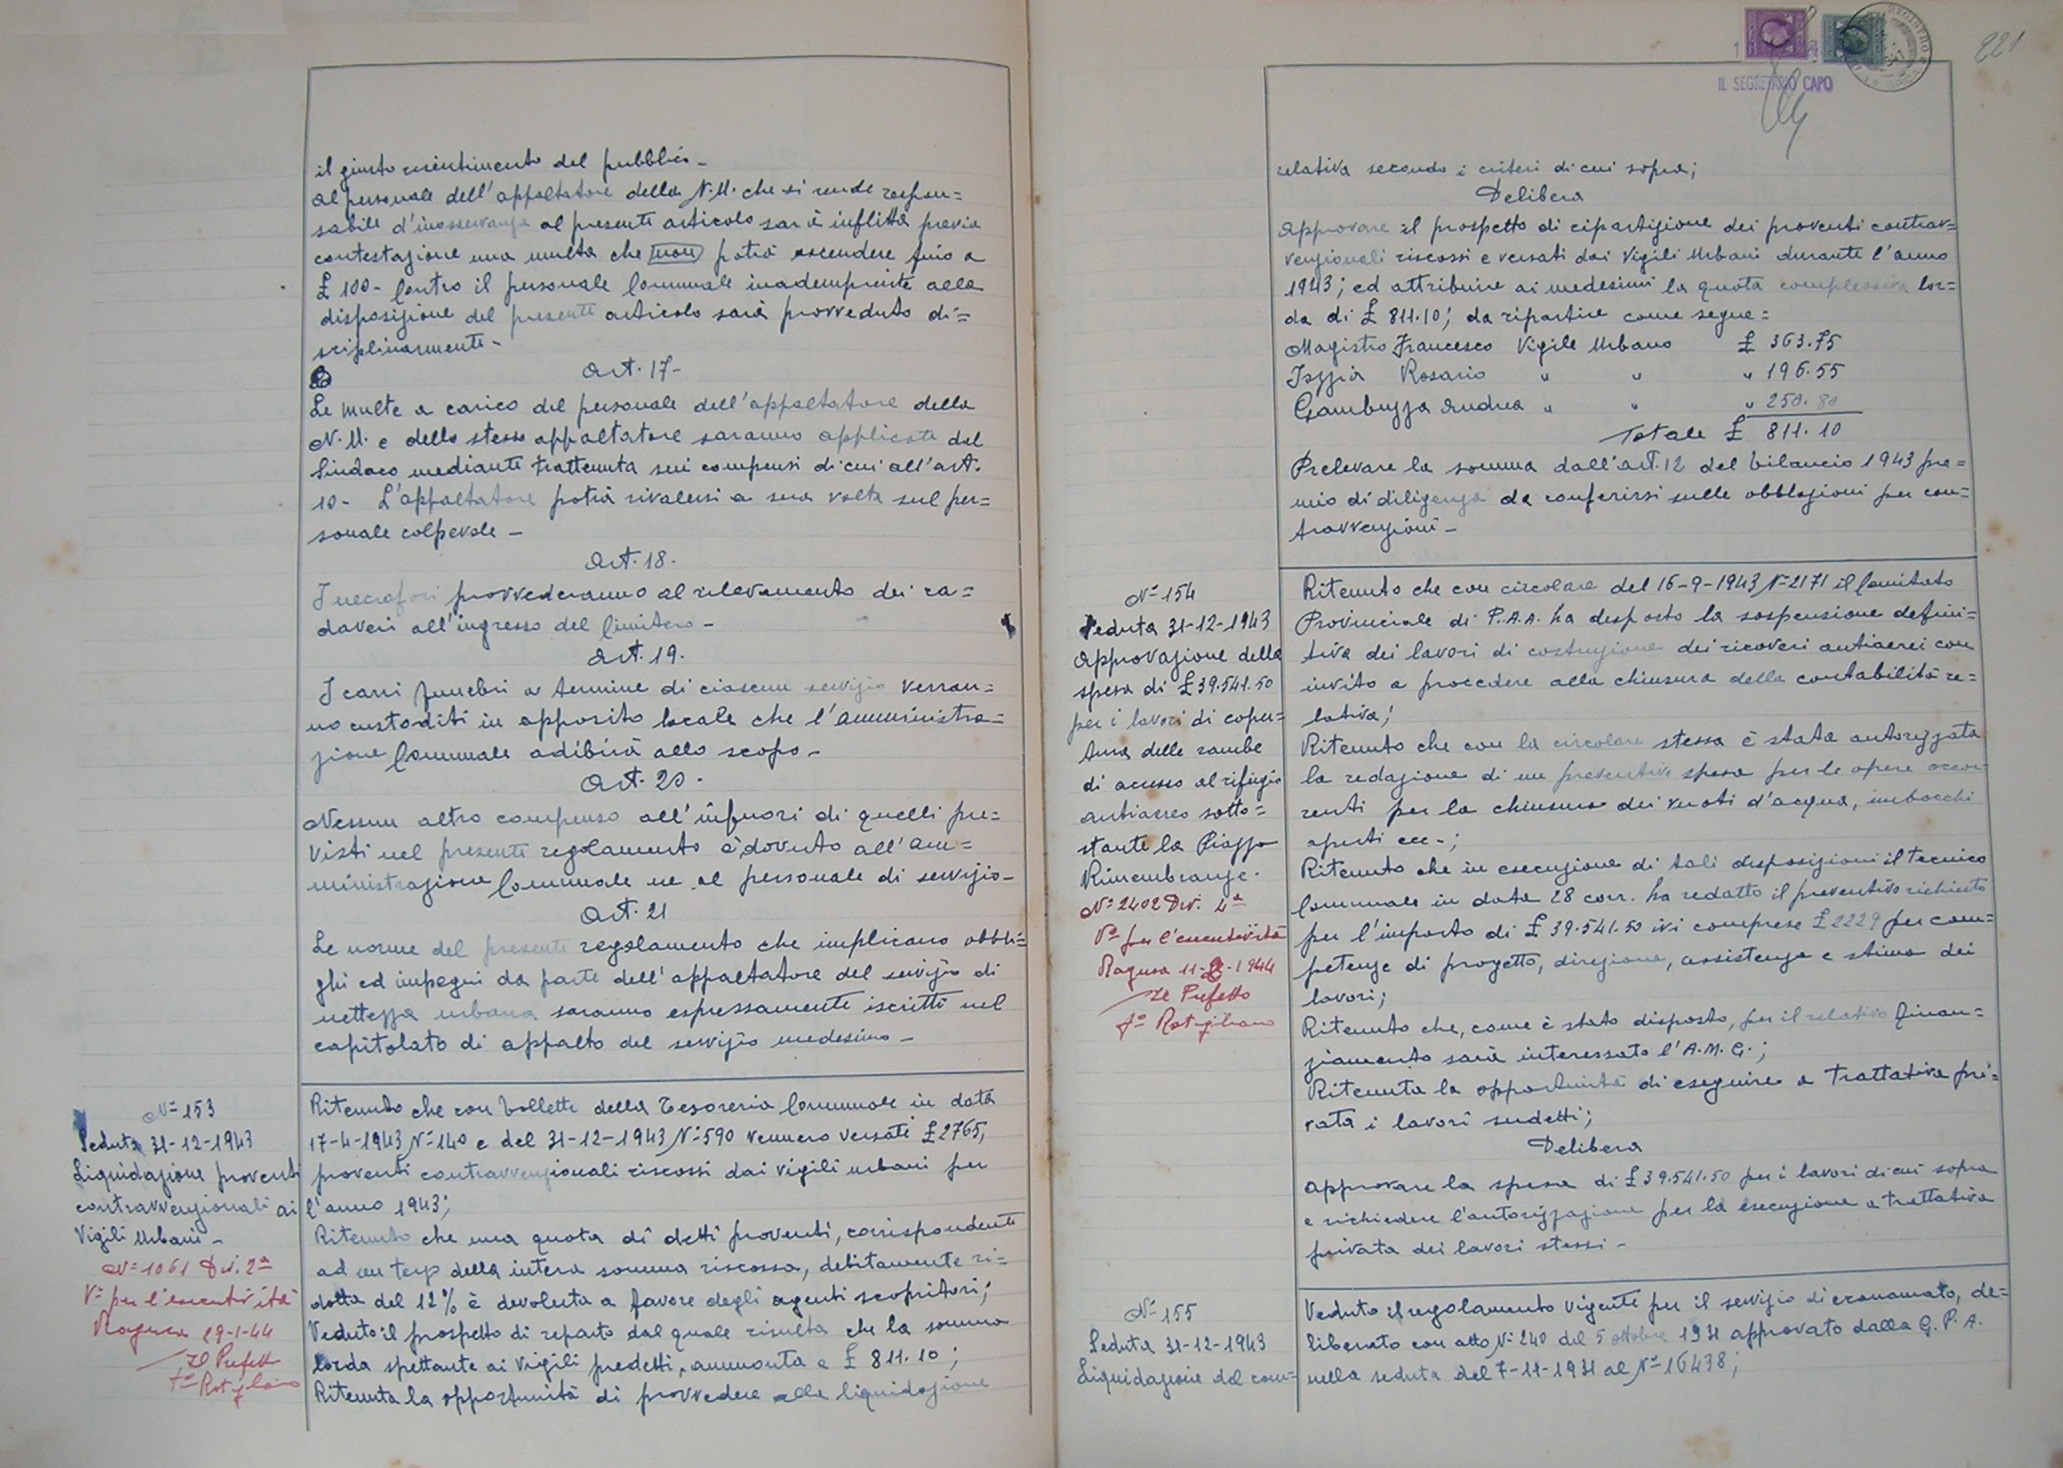 il giusto risentimento del pubblico -
Al personale dell'appaltatore della N.U. che si rende respon=
sabile d'inosservanza al presente articolo sarà inflitta previa
contestazione una multa che non potrà ascendere fino a
£ 100 - Contro il personale Comunale inadempiente alla
disposizione del presente articolo sarà provveduto di=
sciplinarmente -
Art. 17 -
Le multe a carico del personale dell'appaltatore della
N.U. e dello stesso appaltatore saranno applicate dal
Sindaco mediante trattenuta sui compensi di cui all'art.
10 - L'appaltatore potrà rivalersi a sua volta sul per=
sonale colpevole -
Art. 18.
I necrofori provvederanno al rilevamento dei ca=
daveri all'ingresso del Cimitero -
Art. 19.
I carri funebri a termine di ciascun servizio verran=
no custoditi in apposito locale che l'amministra=
zione Comunale adibirà allo scopo -
Art. 20 -
Nessun altro compenso all'infuori di quelli pre=
visti nel presente regolamento è dovuto all'am=
ministrazione Comunale ne al personale di servizio -
Art. 21
Le norme del presente regolamento che implicano obbli=
ghi ed impegni da parte dell'appaltatore del servizio di
nettezza urbana saranno espressamente iscritti nel
capitolato di appalto del servizio medesimo -
N° 153
Seduta 31-12-1943
Liquidazione proventi
contravvenzionali ai
Vigili Urbani -
N° 1061 Div. 2ª
V° per l'esecutività
Ragusa 29-1-44
Il Prefetto
Fº Rotigliano
Ritenuto che con bollette della Tesoreria Comunale in data
17-4-1943 N° 140 e del 31-12-1943 N° 590 vennero versate £ 2765,
proventi contravvenzionali riscossi dai vigili urbani per
l'anno 1943;
Ritenuto che una quota di detti proventi, corrispondente
ad un terzo della intera somma riscossa, debitamente ri=
dotta del 12% è devoluta a favore degli agenti scopritori;
Veduto il prospetto di reparto dal quale risulta che la somma
lorda spettante ai Vigili predetti, ammonta a £ 811.10;
Ritenuta la opportunità di provvedere alla liquidazione
221
IL SEGRETARIO CAPO
relativa secondo i criteri di cui sopra;
Delibera
Approvare il prospetto di ripartizione dei proventi contrav=
venzionali riscossi e versati dai Vigili Urbani durante l'anno
1943; ed attribuire ai medesimi la quota complessiva lor=
da di £ 811.10; da ripartire come segue =
Magistro Francesco Vigile Urbano £ 363.75
Iozzia Rosario " " " 196.55
Gambuzza Andrea " " " 250.80
Totale £ 811.10
Prelevare la somma dall'art. 12 del bilancio 1943 pre=
mio di diligenza da conferirsi sulle obblazioni per con=
travvenzioni -
N° 154
Seduta 31-12-1943
Approvazione della
spesa di £ 39.541.50
per i lavori di coper=
tura delle rambe
di accesso al rifugio
antiaereo sotto=
stante la Piazza
Rimembranze.
N° 2402 Div. 4ª
V° per l'esecutività
Ragusa 11-2-1944
Il Prefetto
Fº Rotigliano
Ritenuto che con circolare del 16-9-1943 N° 2171 il Comitato
Provinciale di P.A.A. ha disposto la sospensione defini=
tiva dei lavori di costruzione dei ricoveri antiaerei con
invito a procedere alla chiusura della contabilità re=
lativa;
Ritenuto che con la circolare stessa è stata autorizzata
la redazione di un preventivo spesa per le opere occor=
renti per la chiusura dei vuoti d'acqua, imbocchi
aperti ecc-;
Ritenuto che in esecuzione di tali disposizioni il tecnico
Comunale in data 28 corr. ha redatto il preventivo richiesto
per l'importo di £ 39.541.50 ivi comprese £ 2229 per com=
petenze di progetto, direzione, assistenza e stima dei
lavori;
Ritenuto che, come è stato disposto, per il relativo finan=
ziamento sarà interessato l'A.M.G.;
Ritenuta la opportunità di eseguire a trattativa pri=
vata i lavori sudetti;
Delibera
Approvare la spesa di £ 39.541.50 per i lavori di cui sopra
e richiedere l'autorizzazione per la esecuzione a trattativa
privata dei lavori stessi -
N° 155
Seduta 31-12-1943
Liquidazione del com=
Veduto il regolamento vigente per il servizio di economato, de=
liberato con atto N° 240 del 5 ottobre 1931 approvato dalla G.P.A.
nella seduta del 7-11-1931 al N° 16438;